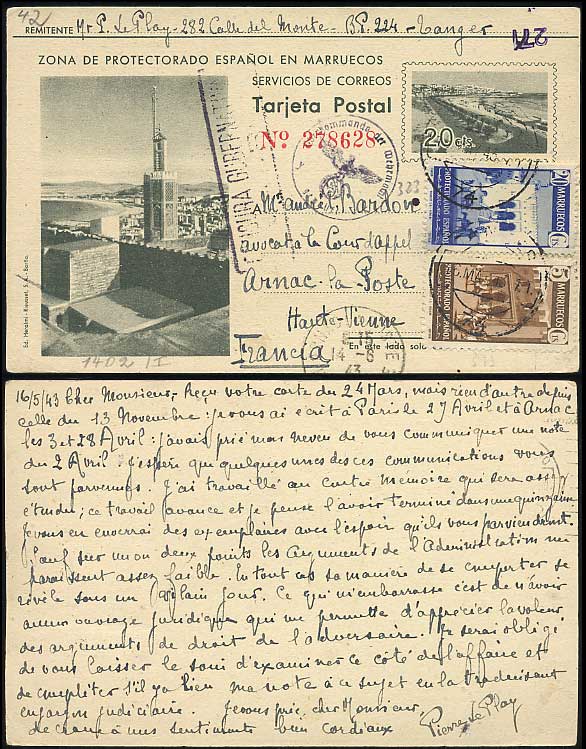 42
REMITENTE Mr P. Le Play - 282 Calle del Monte - B.P. 224 - Tanger
271
ZONA DE PROTECTORADO ESPAÑOL EN MARRUECOS
SERVICIOS DE CORREOS
Tarjeta Postal
Nº 278628
20 cts.
CENSURA GUBERNATIVA
383
A M. André Bardon
avocat à la Cour d'appel
Arnac-la-Poste
Haute-Vienne
Francia
En este lado solo
20 Cts
MARRUECOS
PROTECTORADO ESPAÑOL
5 Cts
MARRUECOS
PROTECTORADO ESPAÑOL
14-6
1402 II
16/5/43 Cher Monsieur, Reçu votre carte du 24 Mars, mais rien d'autre depuis
celle du 13 Novembre: je vous ai écrit à Paris le 27 Avril et à Arnac
les 3 et 28 Avril: j'avais prié mon neveu de vous communiquer une note
du 2 Avril. J'espère que quelques unes de ces communications vous
sont parvenues. J'ai travaillé au Contre Mémoire qui sera assez
étendu; ce travail avance et je pense l'avoir terminé dans une quinzaine
Je vous en enverrai des exemplaires avec l'espoir qu'ils vous parviendront.
Sauf sur un ou deux points les Arguments de l'Administration me
paraissent assez faible. En tout cas sa manière de se comporter se
révèle sous un vilain jour. Ce qui m'embarrasse c'est de n'avoir
aucun ouvrage juridique qui me permette d'apprécier la valeur
des arguments de droit de l'adversaire. Je serai obligé
de vous laisser le soin d'examiner ce côté de l'affaire et
de compléter s'il y a lieu ma note à ce sujet en la traduisant
en jargon judiciaire. Je vous prie, cher Monsieur,
de croire à mes sentiments bien cordiaux
Pierre Le Play